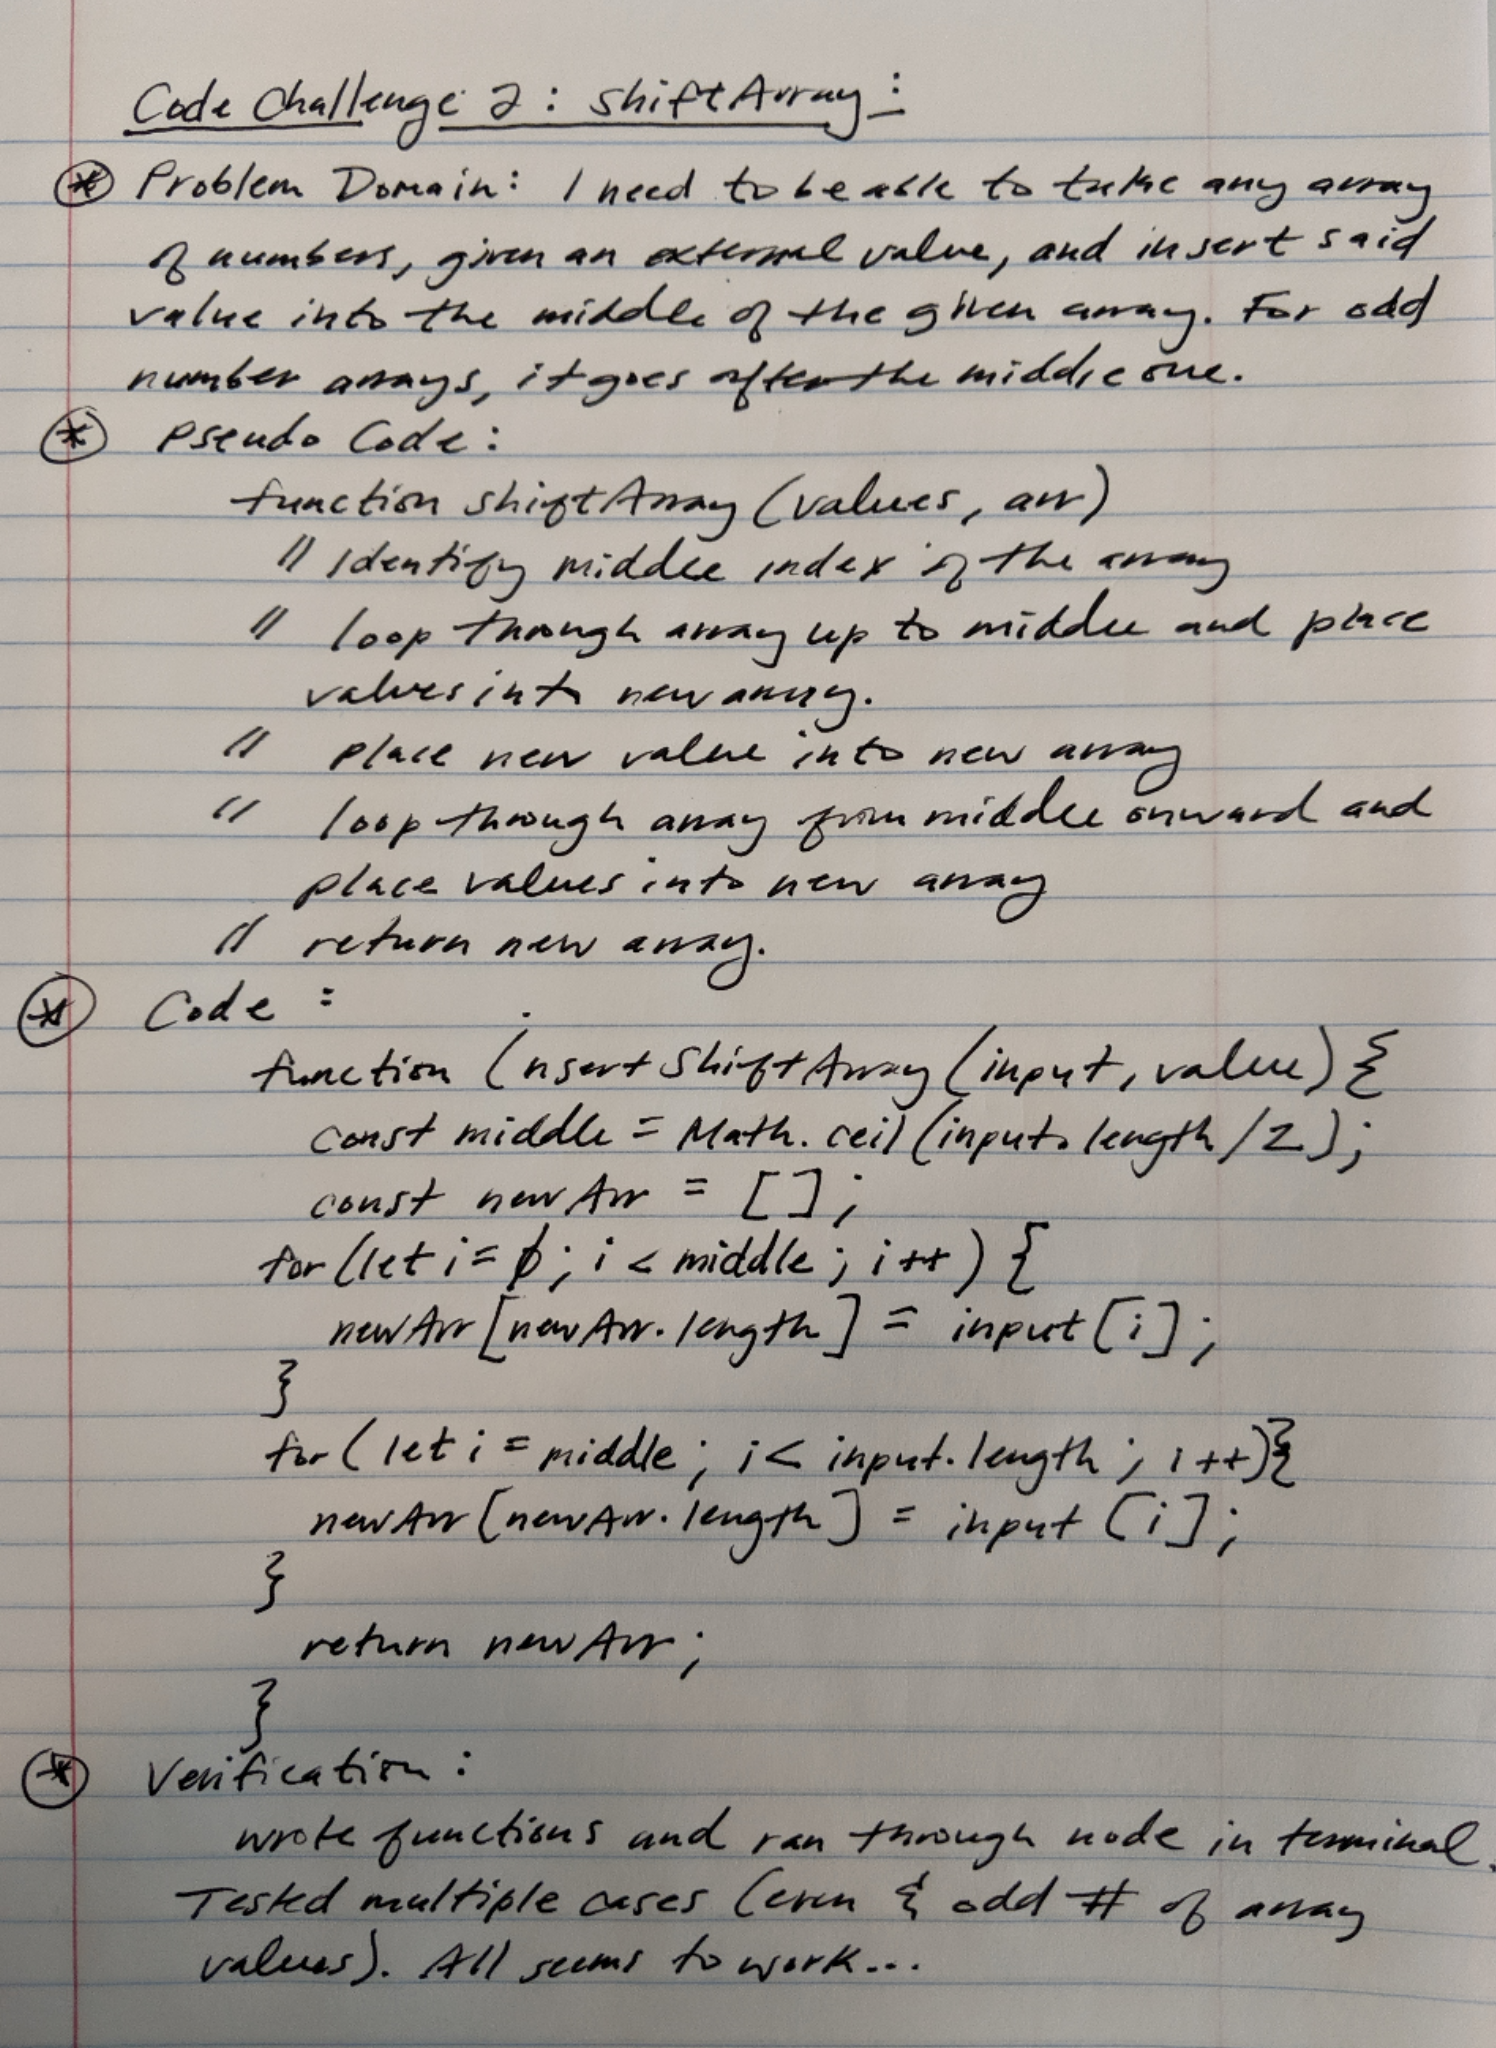 Code Challenge 2: shiftArray:
* Problem Domain: I need to be able to take any array
of numbers, given an external value, and insert said
value into the middle of the given array. For odd
number arrays, it goes after the middle one.
* Pseudo Code:
function shiftArray (values, arr)
// Identify middle index of the array
// loop through array up to middle and place
values into new array.
// place new value into new array
// loop through array from middle onward and
place values into new array
// return new array.
* Code :
function insertShiftArray (input, value) {
const middle = Math.ceil (input.length / 2);
const newArr = [];
for (let i = 0; i < middle; i++) {
newArr [newArr.length] = input [i];
}
for (let i = middle; i < input.length; i++) {
newArr [newArr.length] = input [i];
}
return newArr;
}
* Verification:
wrote functions and ran through node in terminal.
Tested multiple cases (even & odd # of array
values). All seems to work...